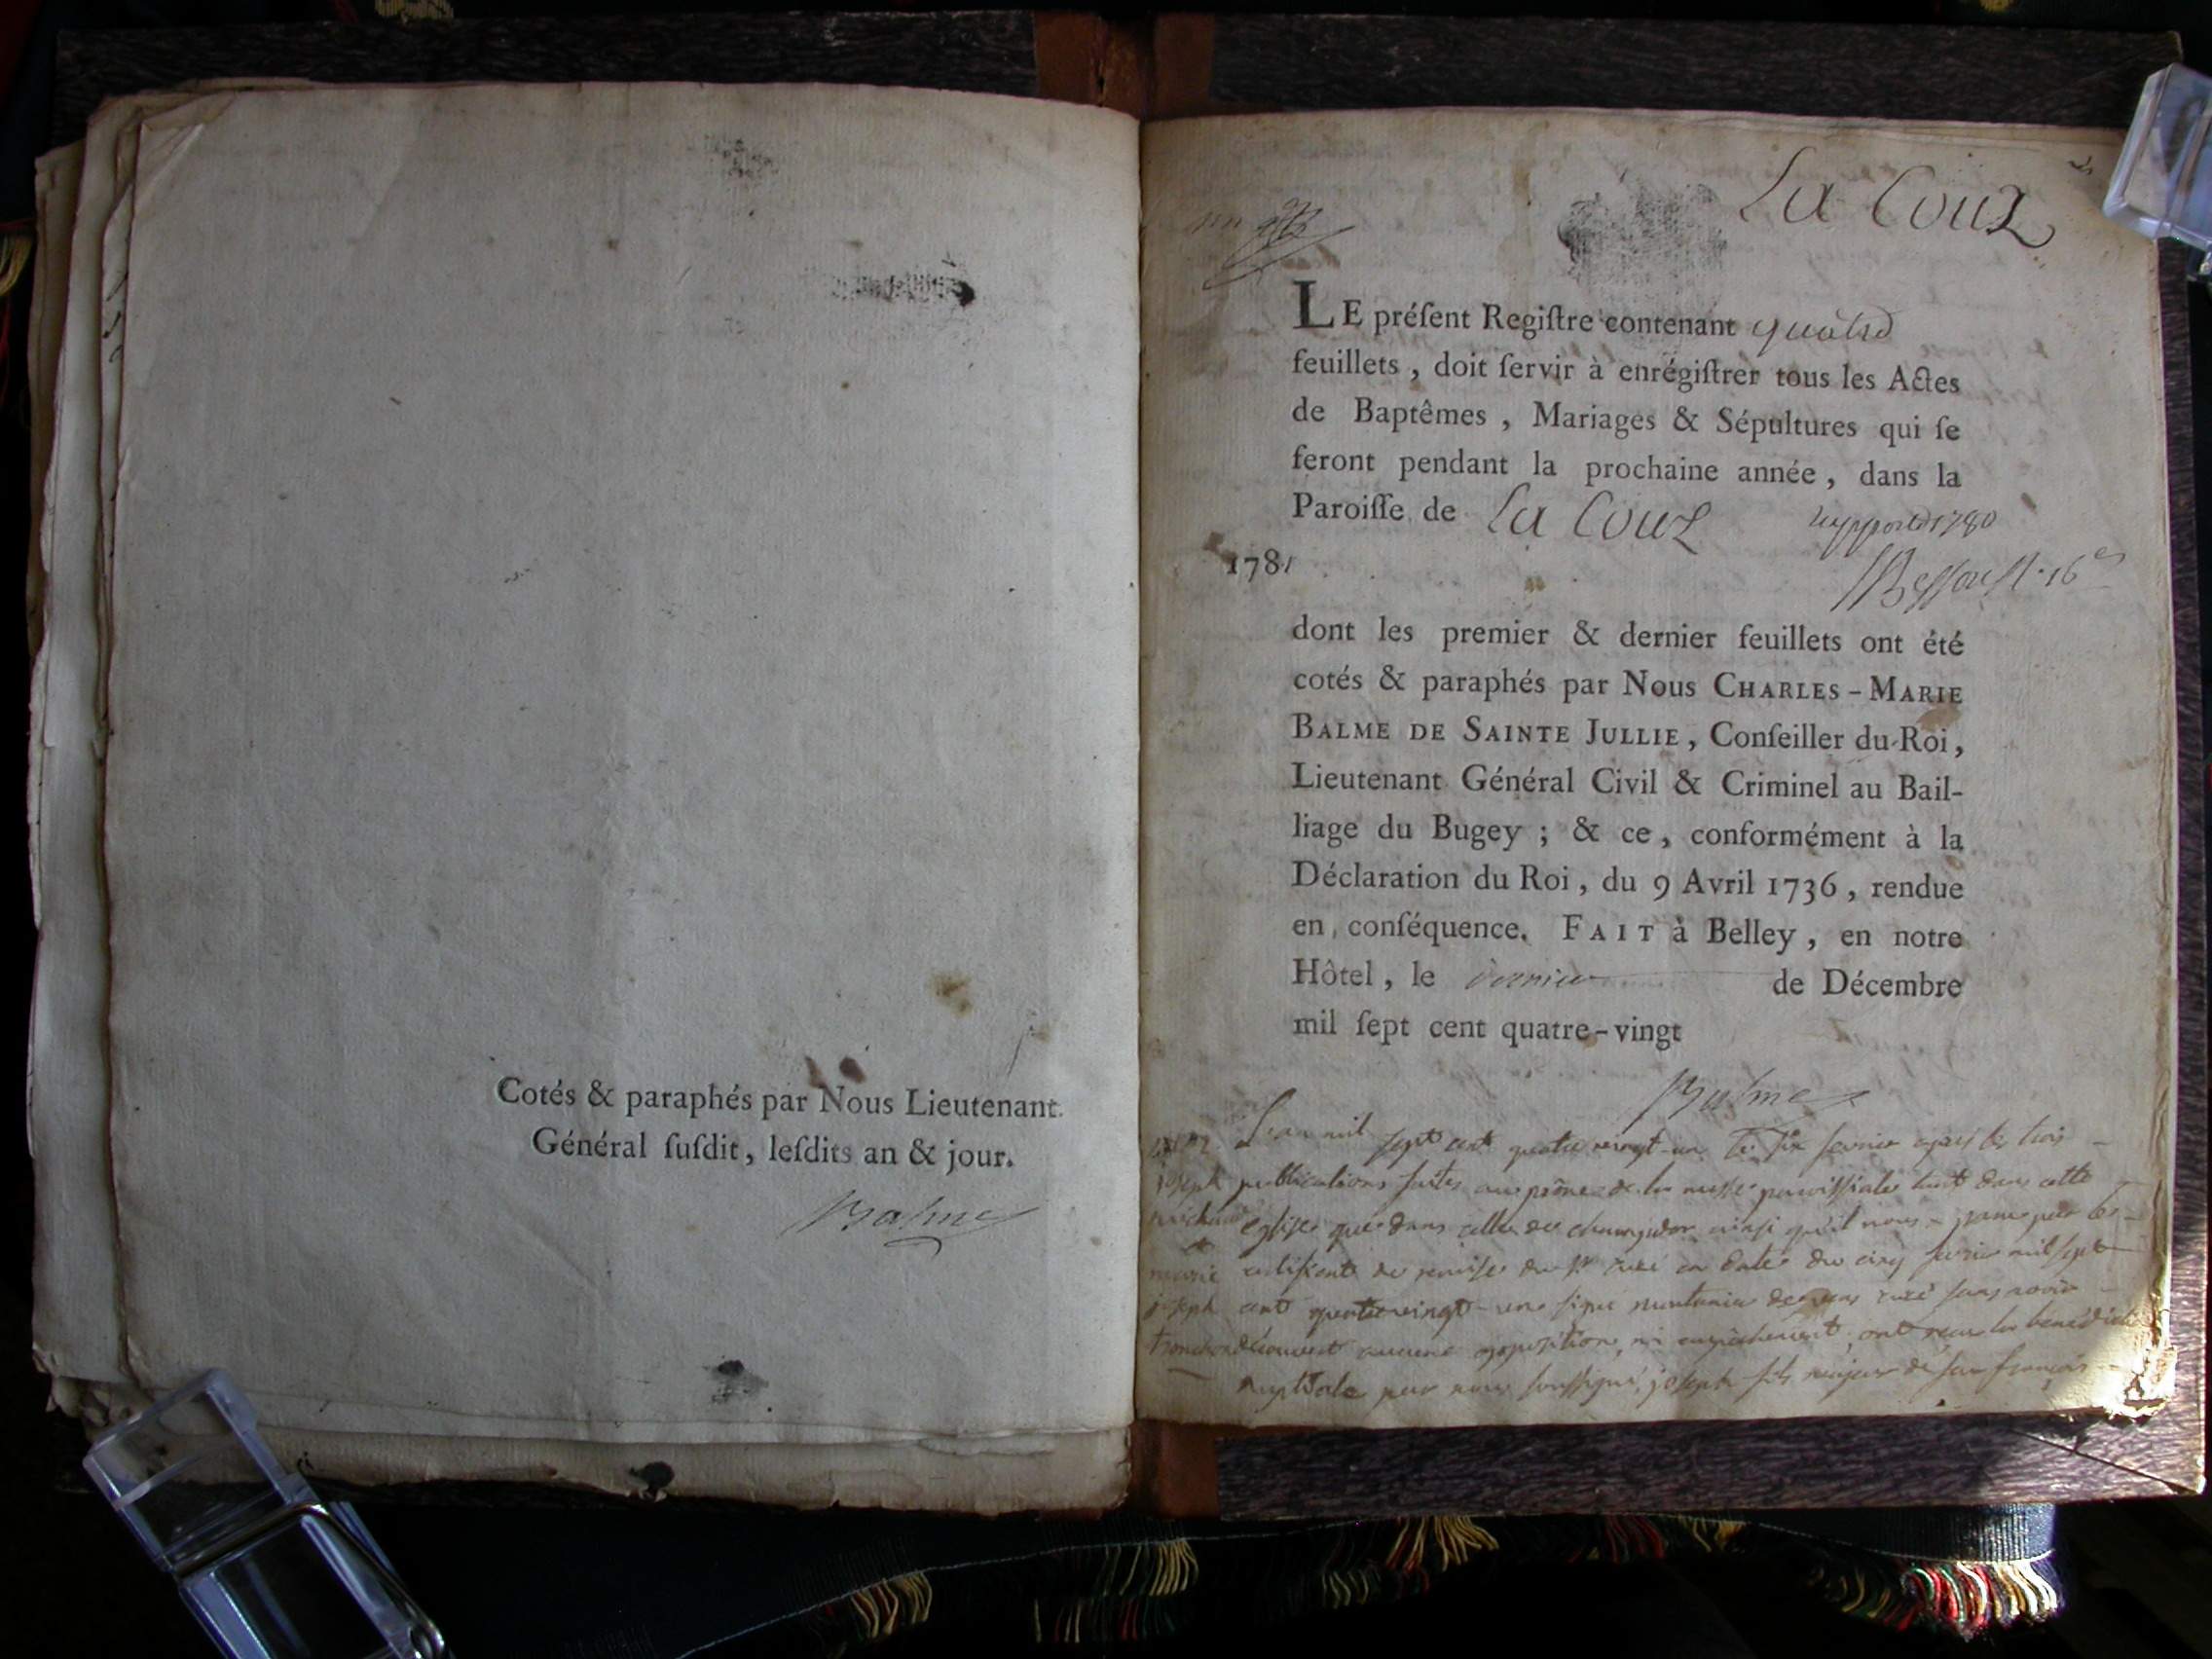 Cotés & paraphés par Nous Lieutenant
Général ſuſdit, leſdits an & jour.
Balme
La Couz
LE préſent Regiſtre contenant quatre
feuillets, doit ſervir à enrégiſtrer tous les Actes
de Baptêmes, Mariages & Sépultures qui ſe
feront pendant la prochaine année, dans la
Paroiſſe de La Couz
1781
dont les premier & dernier feuillets ont été
cotés & paraphés par Nous CHARLES-MARIE
BALME DE SAINTE JULLIE, Conſeiller du Roi,
Lieutenant Général Civil & Criminel au Bail-
liage du Bugey; & ce, conformément à la
Déclaration du Roi, du 9 Avril 1736, rendue
en conſéquence. FAIT à Belley, en notre
Hôtel, le dernier de Décembre
mil ſept cent quatre-vingt
Balme
L'an mil sept cent quatre vingt-un le six fevrier apres les trois
joseph publications faites au prône de la messe paroissiale tant dans cette
michaud eglise que dans celle de ainsi qu'il nous par le
marie certificat de remise du sr curé en date du cinq fevrier mil sept
joseph cent quatre vingt-un signé curé sans avoir
découvert aucune opposition, ni empêchement, ont reçu la
nuptiale par nous soussigné, joseph fils majeur de feu françois